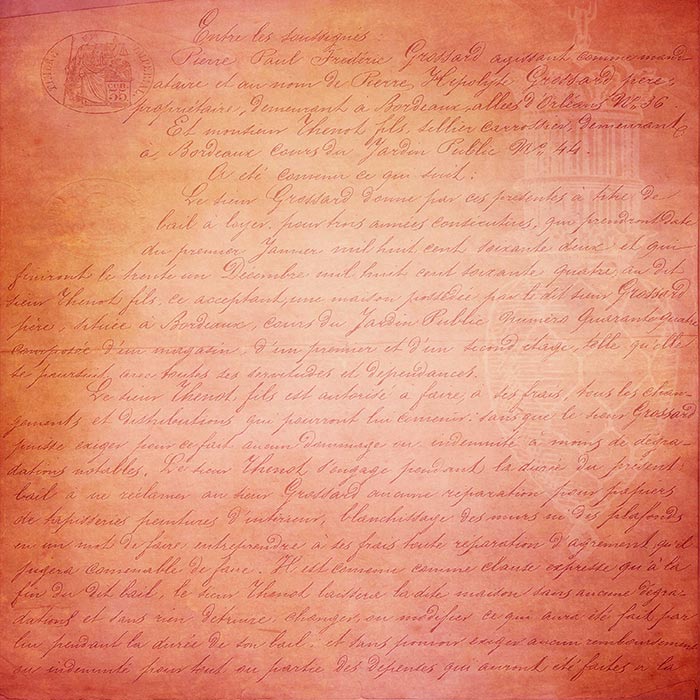 TIMBRE IMPERIAL
35
Entre les soussignés :
Pierre Paul Frédéric Grossard agissant comme mand
ataire et au nom de Pierre Hipolyte Grossard père
propriétaire, demeurant à Bordeaux allées d'Orléans No 36.
Et monsieur Thenot fils, sellier carrossier, demeurant
à Bordeaux cours du Jardin Public No 44.
A été convenu ce qui suit :
Le sieur Grossard donne par ces présentes à titre de
bail à loyer, pour trois années consécutives, qui prendront date
du premier Janvier mil huit cent soixante deux et qui
finiront le trente un Décembre mil huit cent soixante quatre au dit
sieur Thenot fils, ce acceptant, une maison possédée par le dit sieur Grossard
père, située à Bordeaux, cours du Jardin Public numéro Quarante quatre
composée d'un magasin, d'un premier et d'un second étage, telle qu'elle
se poursuit, avec toutes ses servitudes et dépendances.
Le sieur Thenot, fils est autorisé à faire, à ses frais, tous les chan-
gements et distributions qui pourront lui convenir, sans que le sieur Grossard
puisse exiger pour ce fait aucun dommage ou indemnité à moins de dégra-
dations notables. Le sieur Thenot s'engage pendant la durée du présent
bail à ne réclamer au sieur Grossard aucune réparation pour papiers
de tapisseries peintures d'intérieur, blanchissage des murs ni des plafonds
en un mot de faire entreprendre à ses frais toute réparation d'agrément qu'il
jugera convenable de faire. Il est convenu comme clause expresse qu'à la
fin du dit bail, le sieur Thenot laissera la dite maison sans aucune dégra-
dations et sans rien détruire, changer, ou modifier ce qui aura été fait par
lui pendant la durée de son bail, et sans pouvoir exiger aucun remboursement
ou indemnité pour tout ou partie des dépenses qui auront été faites à la